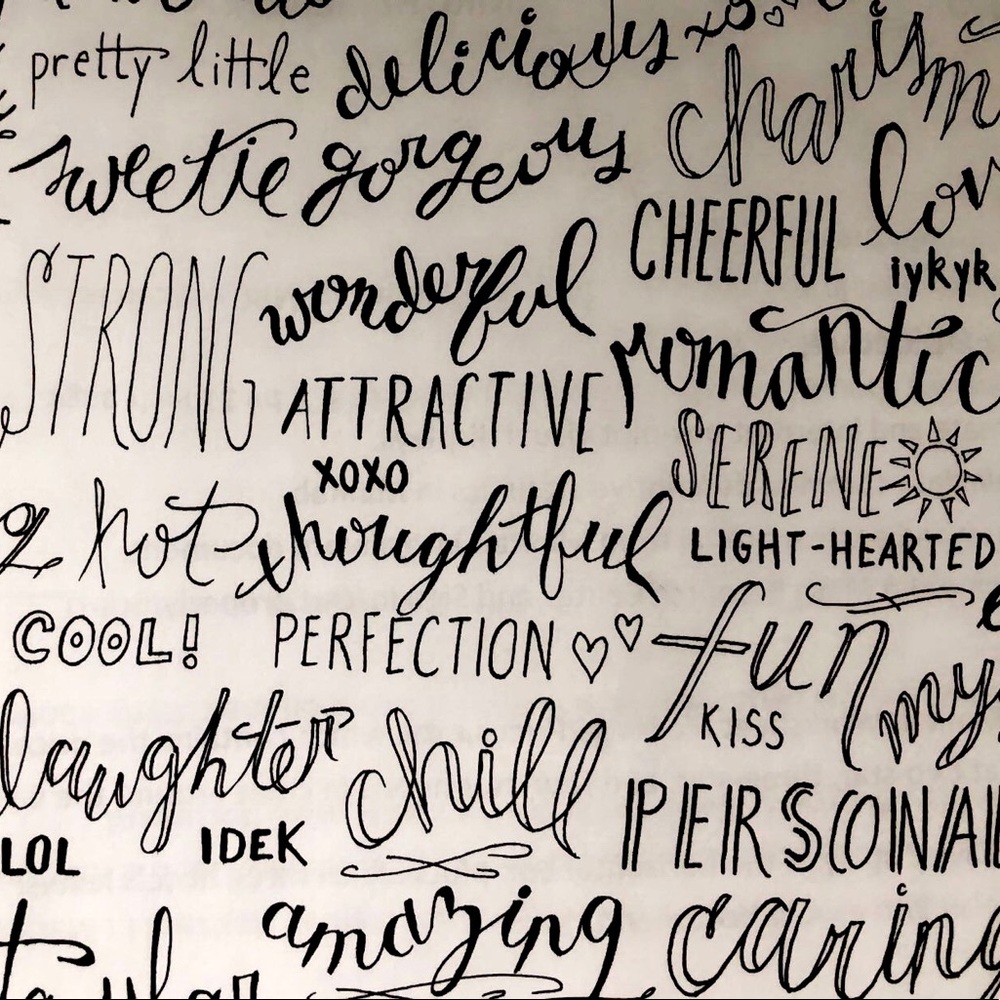 pretty little delicious xo
charism
sweetie gorgeous
CHEERFUL lov
iykyk
STRONG wonderful
romantic
ATTRACTIVE
SERENE
XOXO
hot thoughtful
LIGHT-HEARTED
COOL! PERFECTION fun
KISS my
laughter chill
PERSONA
LOL IDEK
amazing caring